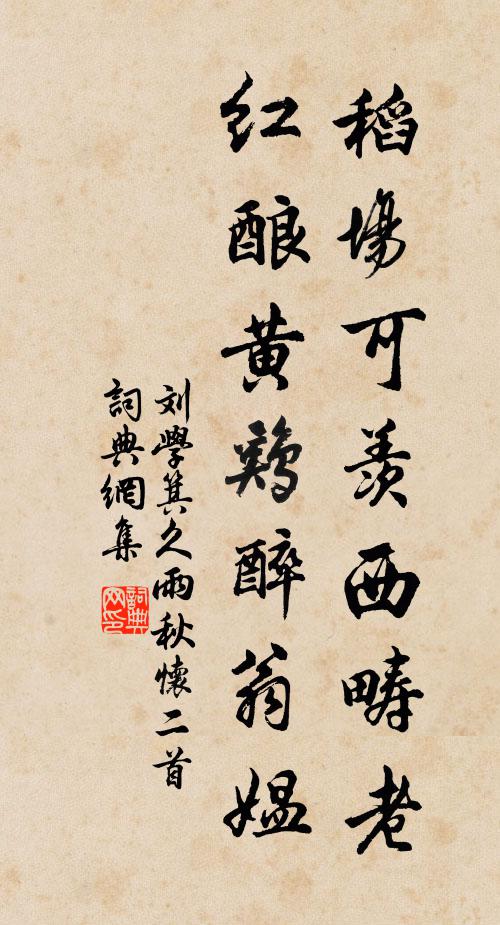 稻場可羨西疇老
红酿黄鷄醉翁媼
刘學箕久雨秋懷二首
詞典網集
詞典
网印